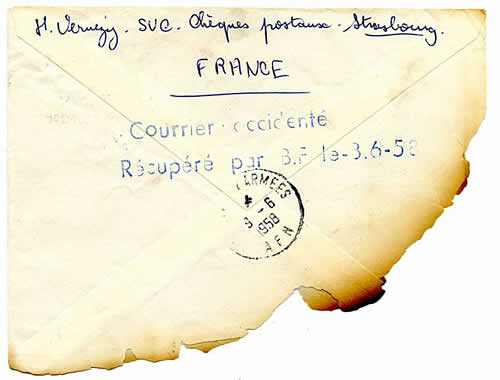 H. Vernezy. SVC. Chèques postaux. Strasbourg.
FRANCE
Courrier accidenté
Récupéré par B.F le-3.6-58
ARMEES
-6
1958
A F N